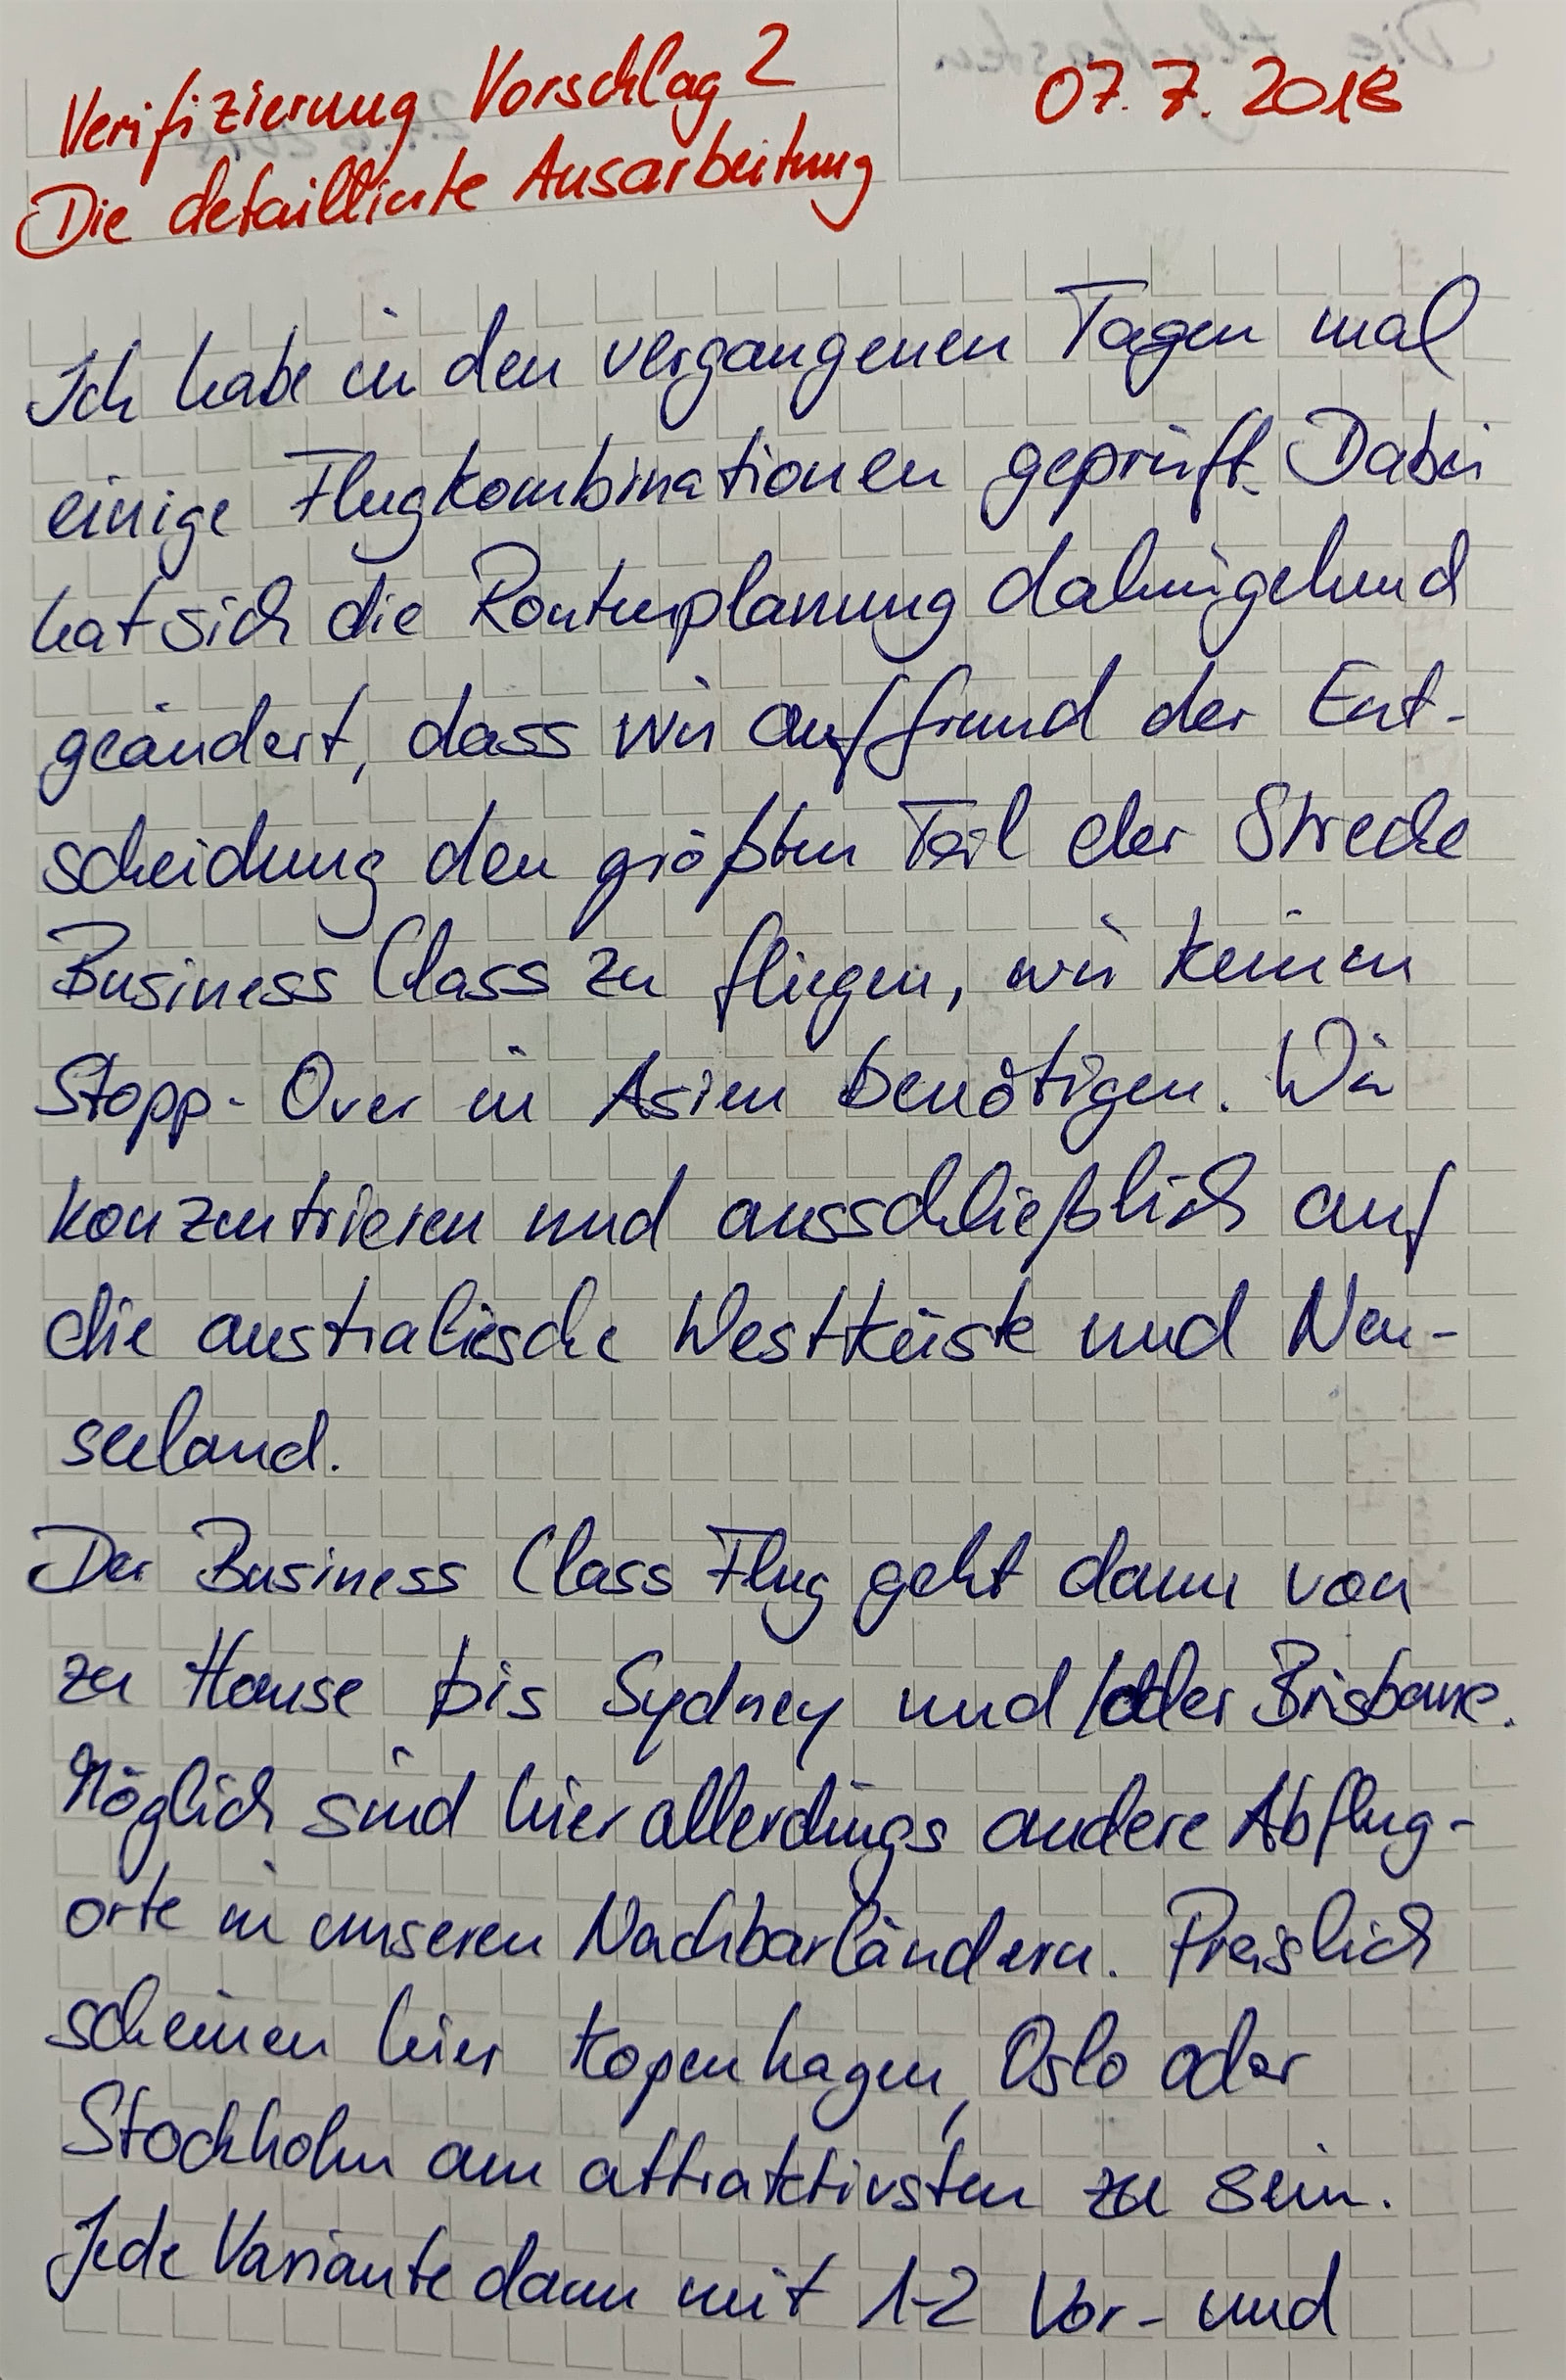 Verifizierung Vorschlag 2
07.7.2018
Die detaillierte Ausarbeitung
Ich habe in den vergangenen Tagen mal
einige Flugkombinationen geprüft. Dabei
hat sich die Routenplanung dahingehend
geändert, dass wir aufgrund der Ent-
scheidung den größten Teil der Strecke
Business Class zu fliegen, wir keinen
Stopp-Over in Asien benötigen. Wir
konzentrieren und ausschließlich auf
die australische Westküste und Neu-
seeland.
Der Business Class Flug geht dann von
zu Hause bis Sydney und/oder Brisbane.
Möglich sind hier allerdings andere Abflug-
orte in unseren Nachbarländern. Preislich
scheinen hier Kopenhagen, Oslo oder
Stockholm am attraktivsten zu sein.
Jede Variante dann mit 1-2 Vor- und